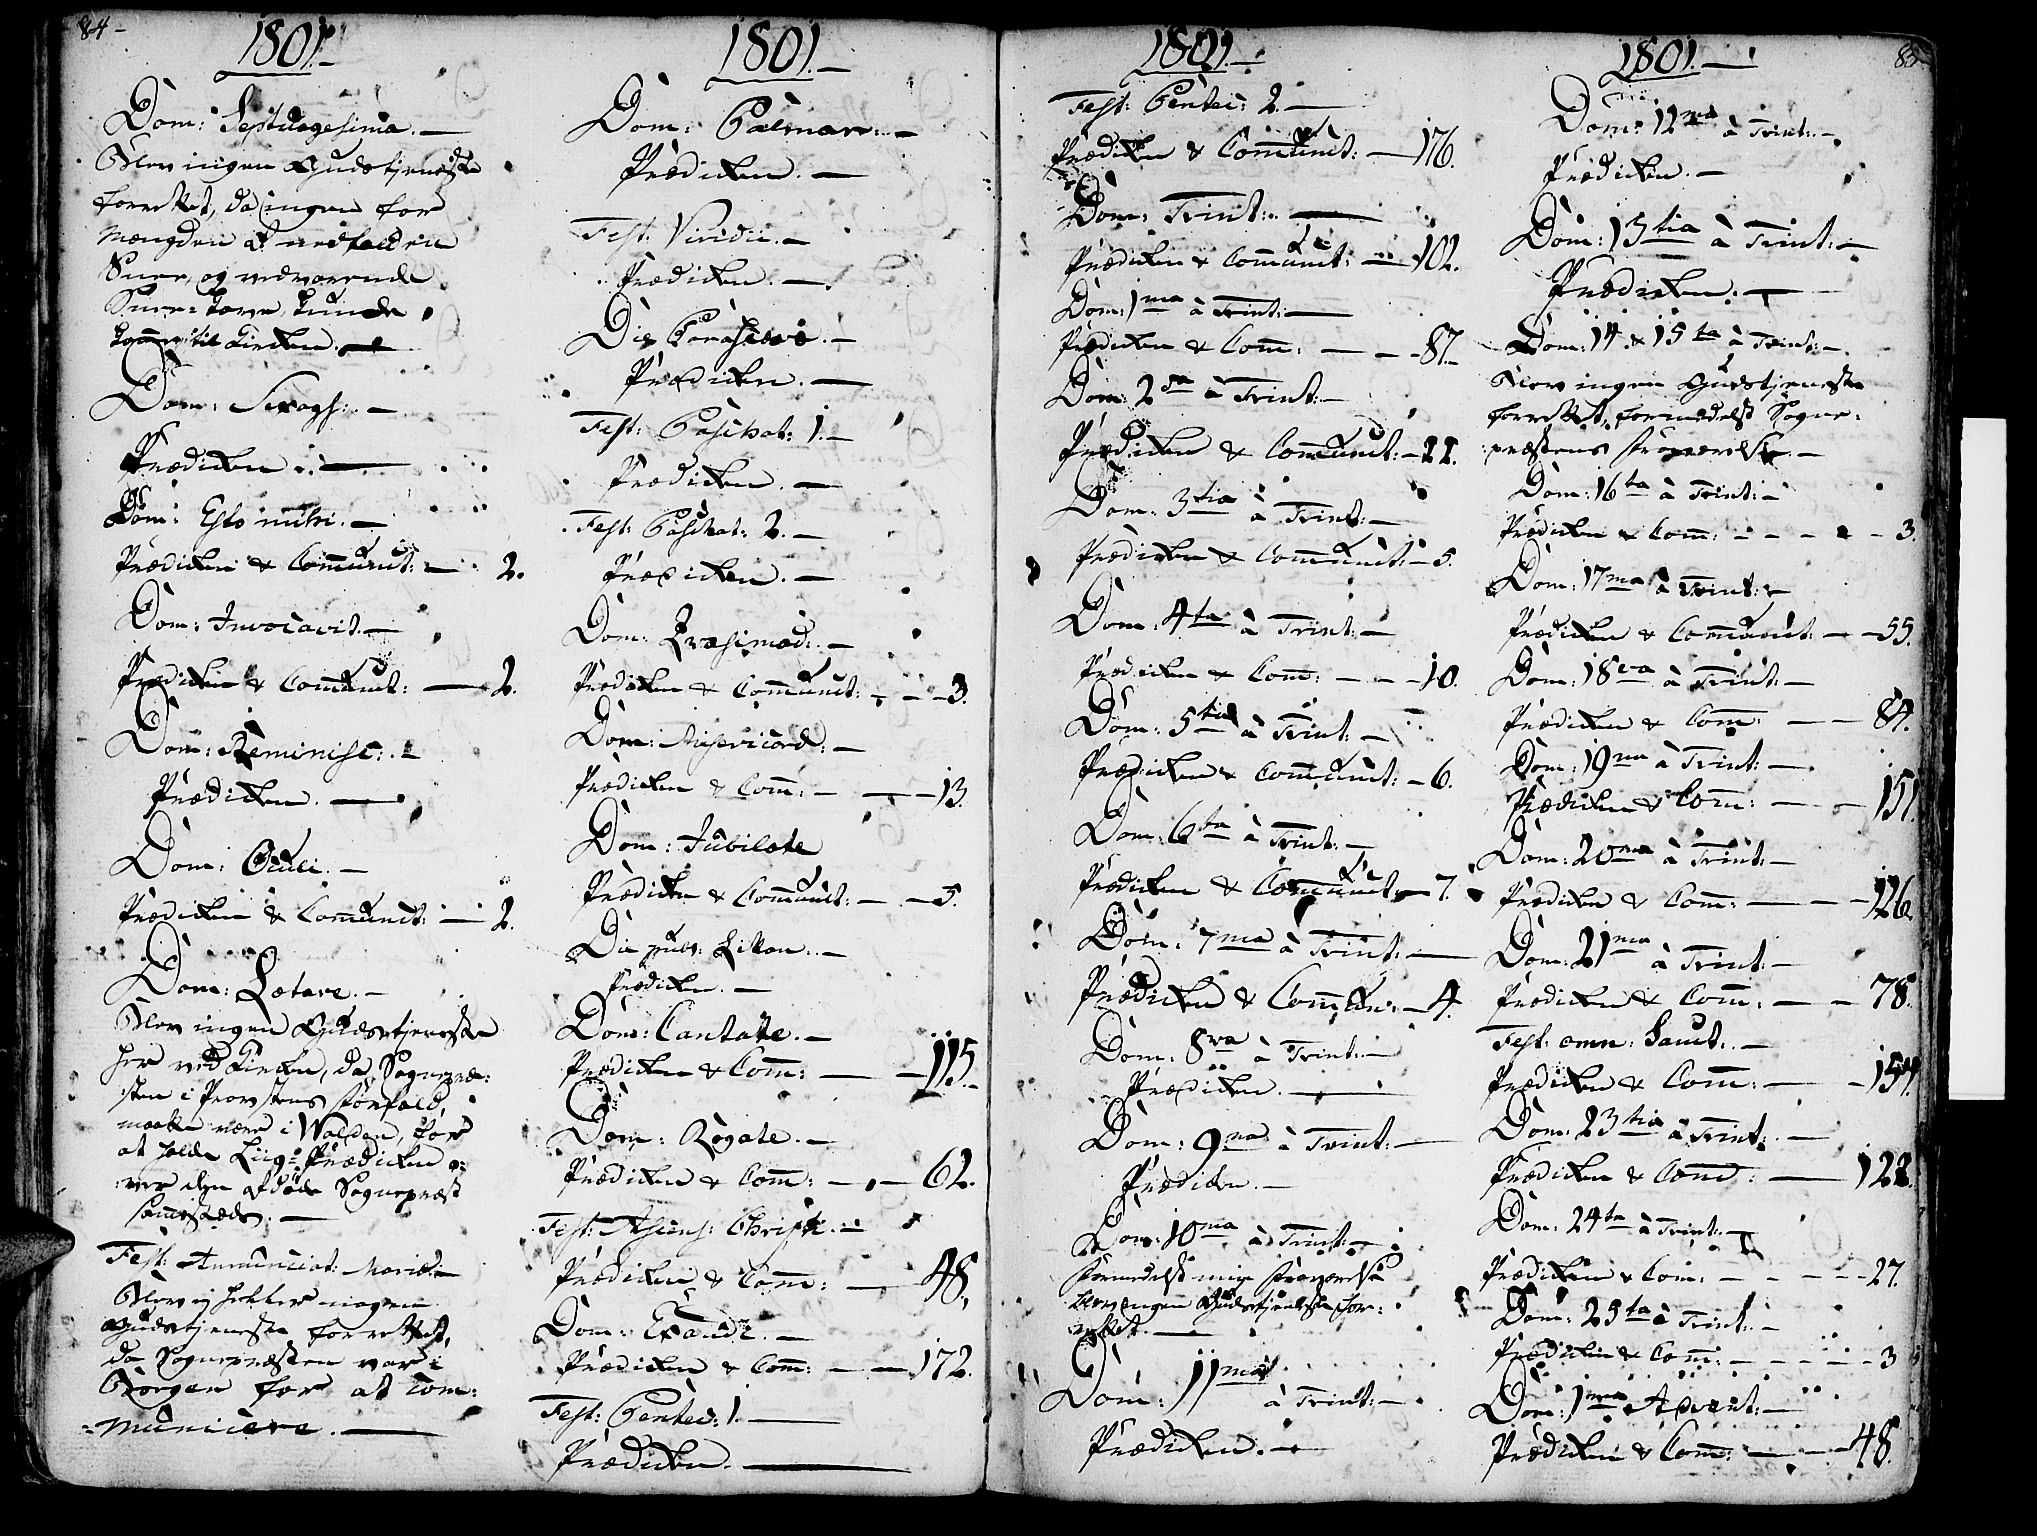 84 -
1801.-
Dom: Septuagesima. -
Blev ingen Gudstjeneste
forrettet, da ingen for
Mængden af nedfalden
Snee, og vedvarende
Snee-Fog kunde
komme til Kirken. -
Dom: Sexags: -
Prædicken. -
Dom: Esto mihi. -
Prædicken & Communic: - 2.
Dom: Invocavit. -
Prædicken & Communic: - 2.
Dom: Reminisc: -
Prædicken. -
Dom: Oculi. -
Prædicken & Communic: - 2.
Dom: Lætare. -
Blev ingen Gudstjeneste
her ved Kirken, da Sognepræ-
sten i Provstens Forfald,
maatte være i Walden, for
at holde Liig-Prædicken o-
ver den afdøde Sognepræst
sammestæds. -
Fest: Annunciat: Mariæ. -
Blev ej heller nogen
Gudstjeneste forrettet,
da Sognepræsten var i
Borgen for at com-
municere. -
1801. -
Dom: Palmar: -
Prædicken. -
Fest: Viridii. -
Prædicken. -
Die Parasceve. -
Prædicken. -
Fest: Paschat: 1. -
Prædicken. -
Fest: Paschat: 2. -
Prædicken. -
Dom: Qvasimod: -
Prædicken & Communic: - - 3.
Dom: Misericord: -
Prædicken & Comm: - - 13.
Dom: Jubilate
Prædicken & Communic: - - 5.
Die publ: Litan: -
Prædicken. -
Dom: Cantate. -
Prædicken & Comm: - - 115. -
Dom: Rogate. -
Prædicken & Comm: - - 62.
Fest: Ascens: Christi. -
Prædicken & Comm: - 48.
Dom: Exaudi. -
Prædicken & Comm: - - 172.
Fest: Pentec: 1. -
Prædicken. -
1801. -
Fest: Pentec: 2. -
Prædicken & Communic: - 176.
Dom: Trinit: -
Prædicken & Communic: - 102.
Dom: 1ma à Trinit: -
Prædicken & Comm: - - - 87. -
Dom: 2da à Trinit: -
Prædicken & Communic: - 22.
Dom: 3tia à Trinit: -
Prædicken & Communic: - 5.
Dom: 4ta à Trinit: -
Prædicken & Comm: - - - 10.
Dom: 5ta à Trinit: -
Prædicken & Communic: - 6.
Dom: 6ta à Trinit: -
Prædicken & Communic: - 7.
Dom: 7ma à Trinit: -
Prædicken & Commun: - 4.
Dom: 8va à Trinit: -
Prædicken. -
Dom: 9na à Trinit: -
Prædicken. -
Dom: 10ma à Trinit: -
Formedelst min Fraværelse
blev ingen Gudstjeneste for-
rettet. -
Dom: 11ma à Trinit: -
Prædicken. -
1801. -
85
Dom: 12ma à Trinit: -
Prædicken. -
Dom: 13tia à Trinit: -
Prædicken. -
Dom: 14 & 15ta à Trinit: -
Blev ingen Gudstjeneste
forrettet, formedelst Sogne-
præstens Fraværelse. -
Dom: 16ta à Trinit: -
Prædicken & Comm: - - - - - 3.
Dom: 17ma à Trinit: -
Prædicken & Communic: - - 55.
Dom: 18va à Trinit: -
Prædicken & Comm: - - 84.
Dom: 19na à Trinit: -
Prædicken & Comm: - - 151.
Dom: 20ma à Trinit: -
Prædicken & Comm: - - - 126.
Dom: 21ma à Trinit: -
Prædicken & Comm: - - 78.
Fest: omn: Sanct: -
Prædicken & Comm: - -
Dom: 23tia à Trinit: -
Prædicken & Comm: - 128.
Dom: 24ta à Trinit: -
Prædicken & Com: - - - - - 27.
Dom: 25ta à Trinit: -
Prædicken & Com: - - - - - 3
Dom: 1ma Advent: -
Prædicken & Com: - - - 48.